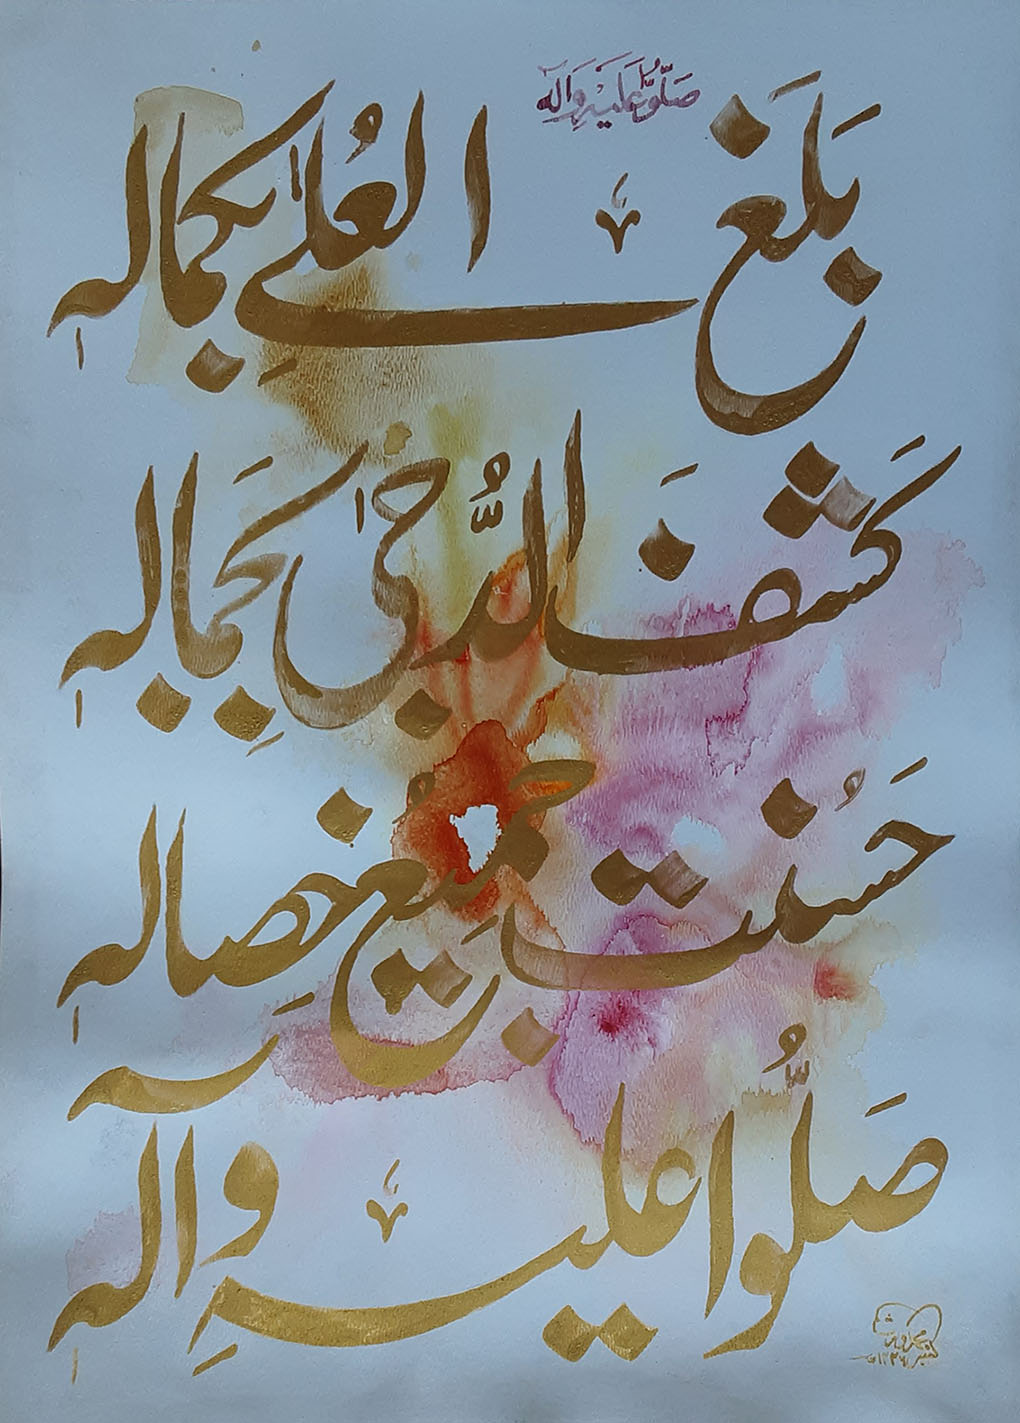 صَلُّوا عَلَيْهِ وَآلِهٖ
بَلَغَ العُلٰى بِكَمالِهٖ
كَشَفَ الدُّجٰى بِجَمالِهٖ
حَسُنَت جَمِيعُ خِصالِهٖ
صَلُّوا عَليهِ وَآلِهٖ